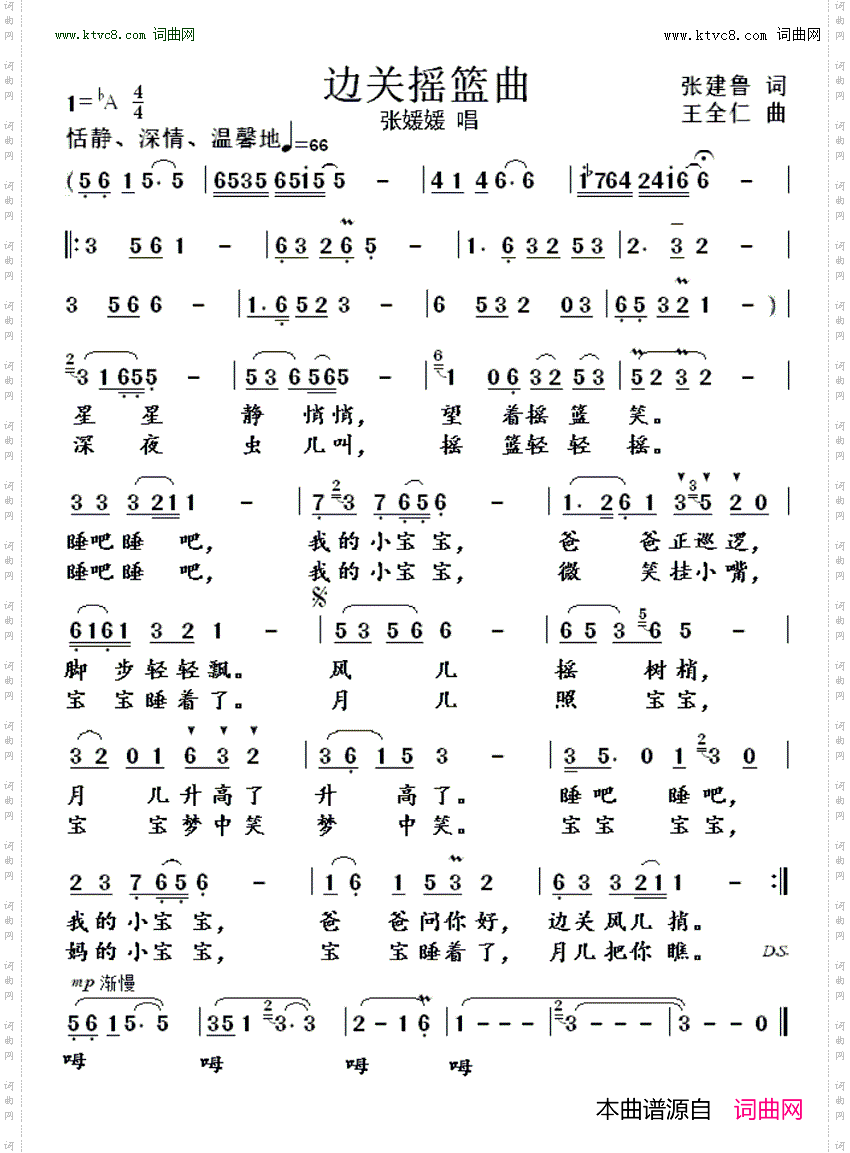 www.ktvc8.com 词曲网
www.ktvc8.com 词曲网
边关摇篮曲
1=♭A 4/4
张建鲁 词
张媛媛 唱
王全仁 曲
恬静、深情、温馨地♩=66
(5 6 1 5· 5 | 6535 6515 5 - | 4 1 4 6· 6 | 1♭764 2416 6 - |
‖:3 5 6 1 - | 6 3 2 6 5 - | 1· 6 3 2 5 3 | 2· 3 2 - |
3 5 6 6 - | 1· 6 5 2 3 - | 6 5 3 2 0 3 | 6 5 3 2 1 - ) |
2 3 1 6 5 5 - | 5 3 6 5 6 5 - | 6 1 0 6 3 2 5 3 | 5 2 3 2 - |
星 星 静 悄悄, 望 着摇 篮 笑。
深 夜 虫 儿叫, 摇 篮轻 轻 摇。
3 3 3 2 1 1 - | 7 2 3 7 6 5 6 - | 1· 2 6 1 3 3 5 2 0 |
睡吧睡 吧, 我的小宝宝, 爸 爸正巡逻,
睡吧睡 吧, 我的小宝宝, 微 笑挂小嘴,
6 1 6 1 3 2 1 - | 5 3 5 6 6 - | 6 5 3 5 6 5 - |
脚 步轻轻飘。 风 儿 摇 树梢,
宝 宝睡着了。 月 儿 照 宝宝,
3 2 0 1 6 3 2 | 3 6 1 5 3 - | 3 5· 0 1 2 3 0 |
月 儿升高了 升 高了。 睡吧 睡吧,
宝 宝梦中笑 梦 中笑。 宝宝 宝宝,
2 3 7 6 5 6 - | 1 6 1 5 3 2 | 6 3 3 2 1 1 - :‖
我的小宝宝, 爸 爸问你好, 边关风儿捎。
妈的小宝宝, 宝 宝睡着了, 月儿把你瞧。 D.S.
mp 渐慢
5 6 1 5· 5 | 3 5 1 2 3· 3 | 2 - 1 6 | 1 - - - | 2 3 - - - | 3 - - 0 ‖
呣 呣 呣 呣
本曲谱源自 词曲网